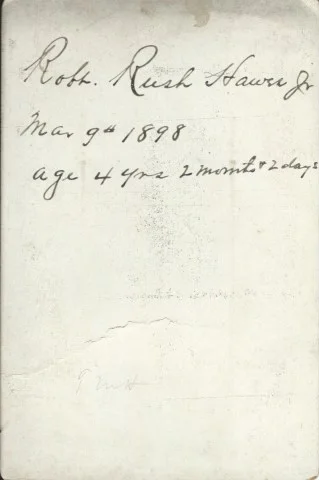 Robt. Rush Hawes Jr
Mar 9th 1898
age 4 yrs 2 months & 2 days